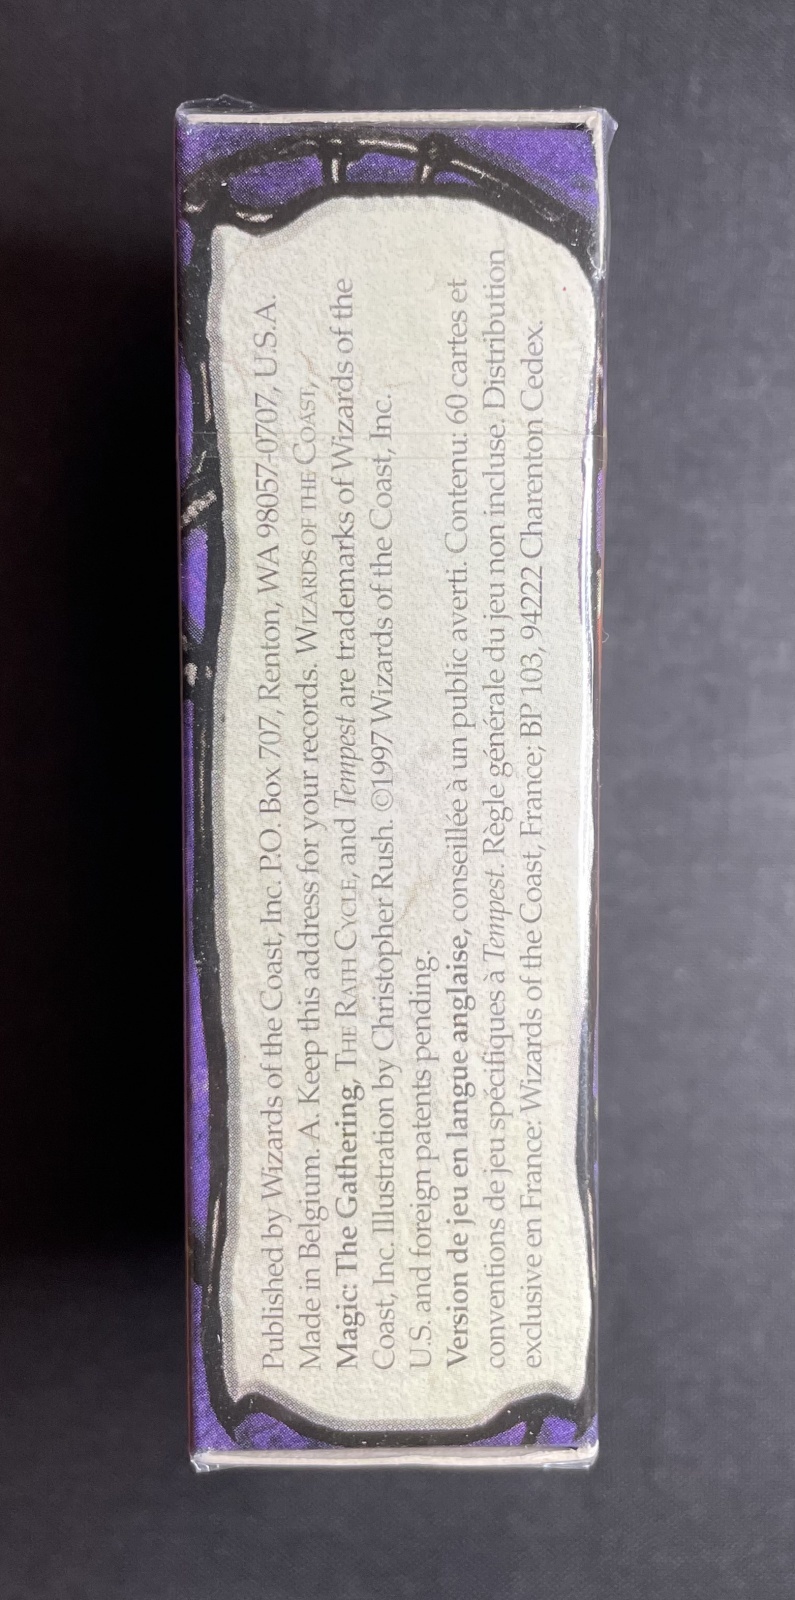 Published by Wizards of the Coast, Inc. P.O. Box 707, Renton, WA 98057-0707, U.S.A.
Made in Belgium. A. Keep this address for your records. WIZARDS OF THE COAST,
Magic: The Gathering, THE RATH CYCLE, and Tempest are trademarks of Wizards of the
Coast, Inc. Illustration by Christopher Rush. ©1997 Wizards of the Coast, Inc.
U.S. and foreign patents pending.
Version de jeu en langue anglaise, conseillée à un public averti. Contenu: 60 cartes et
conventions de jeu spécifiques à Tempest. Règle générale du jeu non incluse. Distribution
exclusive en France: Wizards of the Coast, France; BP 103, 94222 Charenton Cedex.